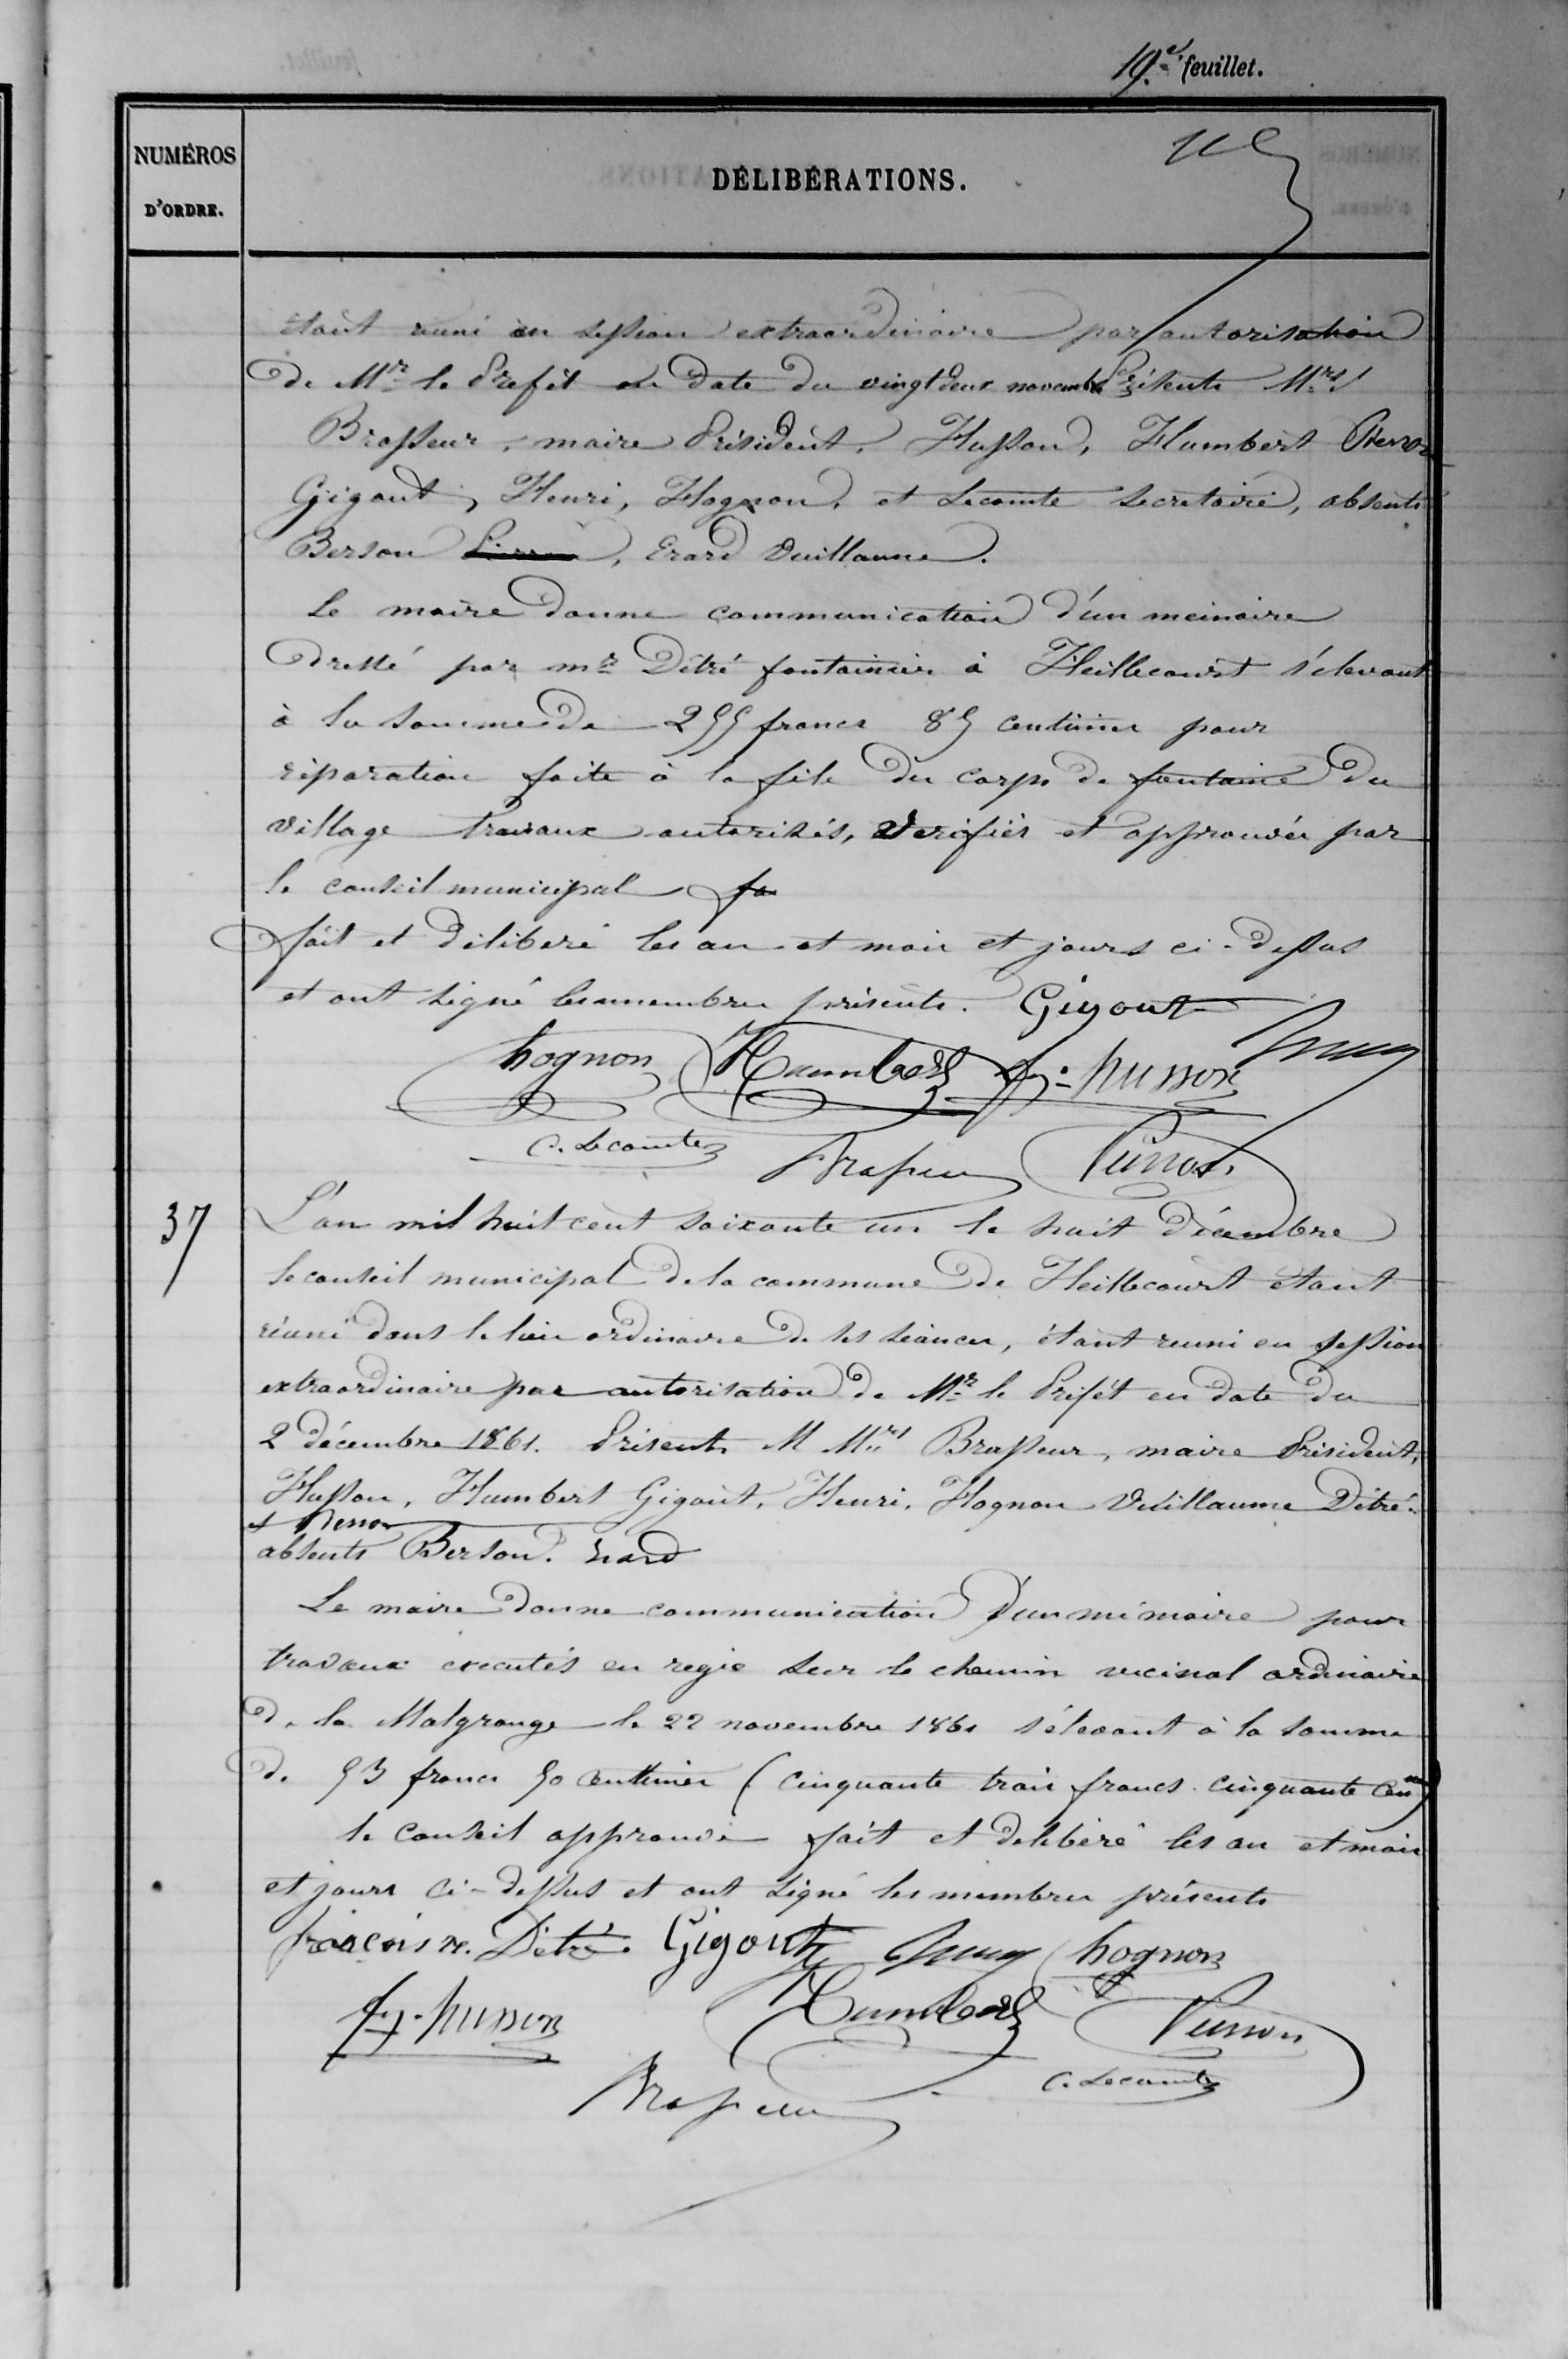 19.e feuillet.
NUMÉROS
D'ORDRE.
DÉLIBÉRATIONS.
étant réuni en session extraordinaire par autorisation
de Mr le Préfèt en date du vingt deux novembre Présents Mrs
Brasseur, maire Président, Husson, Humbert Pierron
Gigout, Henri, Hognon, et Lecomte secretaire, absents
Berson, Erard Vuillaume.
Le maire donne communication d'un mémoire
dressé par mr Détré fontainier à Heillecourt s'élevant
à la somme de 255 francs 85 centimes pour
réparation faite à la file du corps de fontaine du
village travaux autorisés, vérifiés et approuvés par
le conseil municipal fa
fait et déliberé les an et mois et jours ci-dessus
et ont signé les membres présents. Gigout
hognon Humbert husson
C. Lecomte Brasseur Pierron
37
L'an mil huit cent soixante un le huit décembre
le conseil municipal de la commune de Heillecourt étant
réuni dans le lieu ordinaire de ses séances, étant reuni en session
extraordinaire par autorisation de Mr le Préfèt en date du
2 décembre 1861. Présents M Mrs Brasseur, maire Président,
Husson, Humbert Gigout, Henri, Hognon Vuillaume Détré
et Pierron
absents Berson. Erard
Le maire donne communication d'un mémoire pour
travaux executés en regie sur le chemin vicinal ordinaire
de la Malgrange le 22 novembre 1861 s'élevant à la somme
de 53 francs 50 centimes (cinquante trois francs cinquante cen)
le conseil approuve fait et delibéré les an et mois
et jours ci-dessus et ont signé les membres présents
françois Détré. Gigout hognon
husson Humbert Pierron
Brasseur C. Lecomte